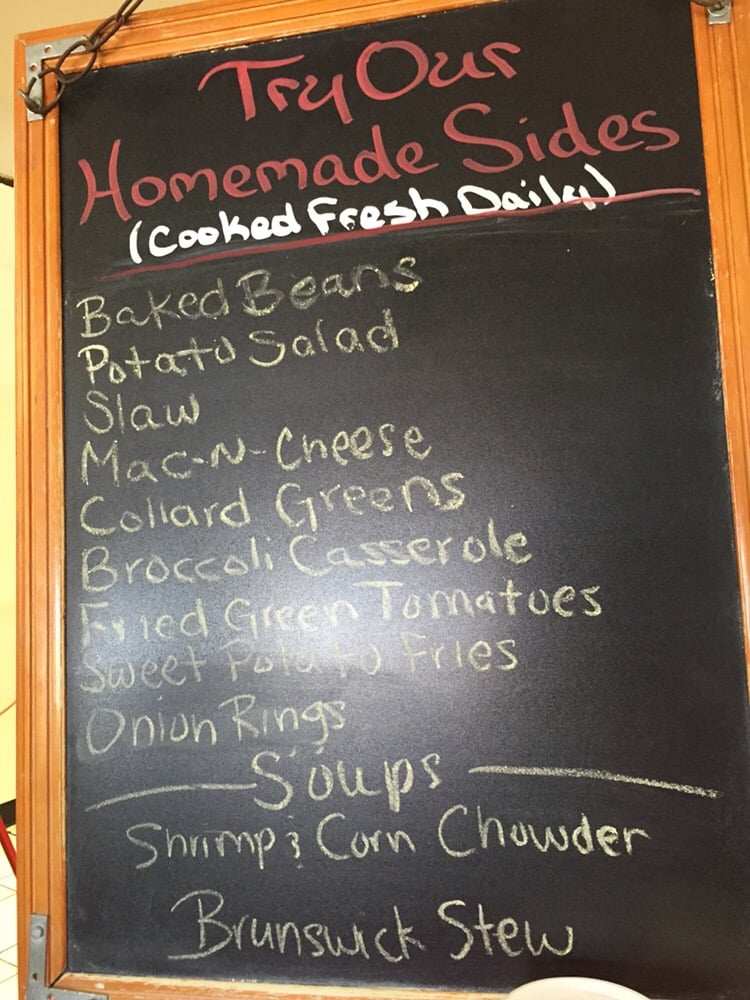 Try Our
Homemade Sides
(Cooked Fresh Daily)
Baked Beans
Potato Salad
Slaw
Mac-N-Cheese
Collard Greens
Broccoli Casserole
Fried Green Tomatoes
Sweet Potato Fries
Onion Rings
Soups
Shrimp & Corn Chowder
Brunswick Stew